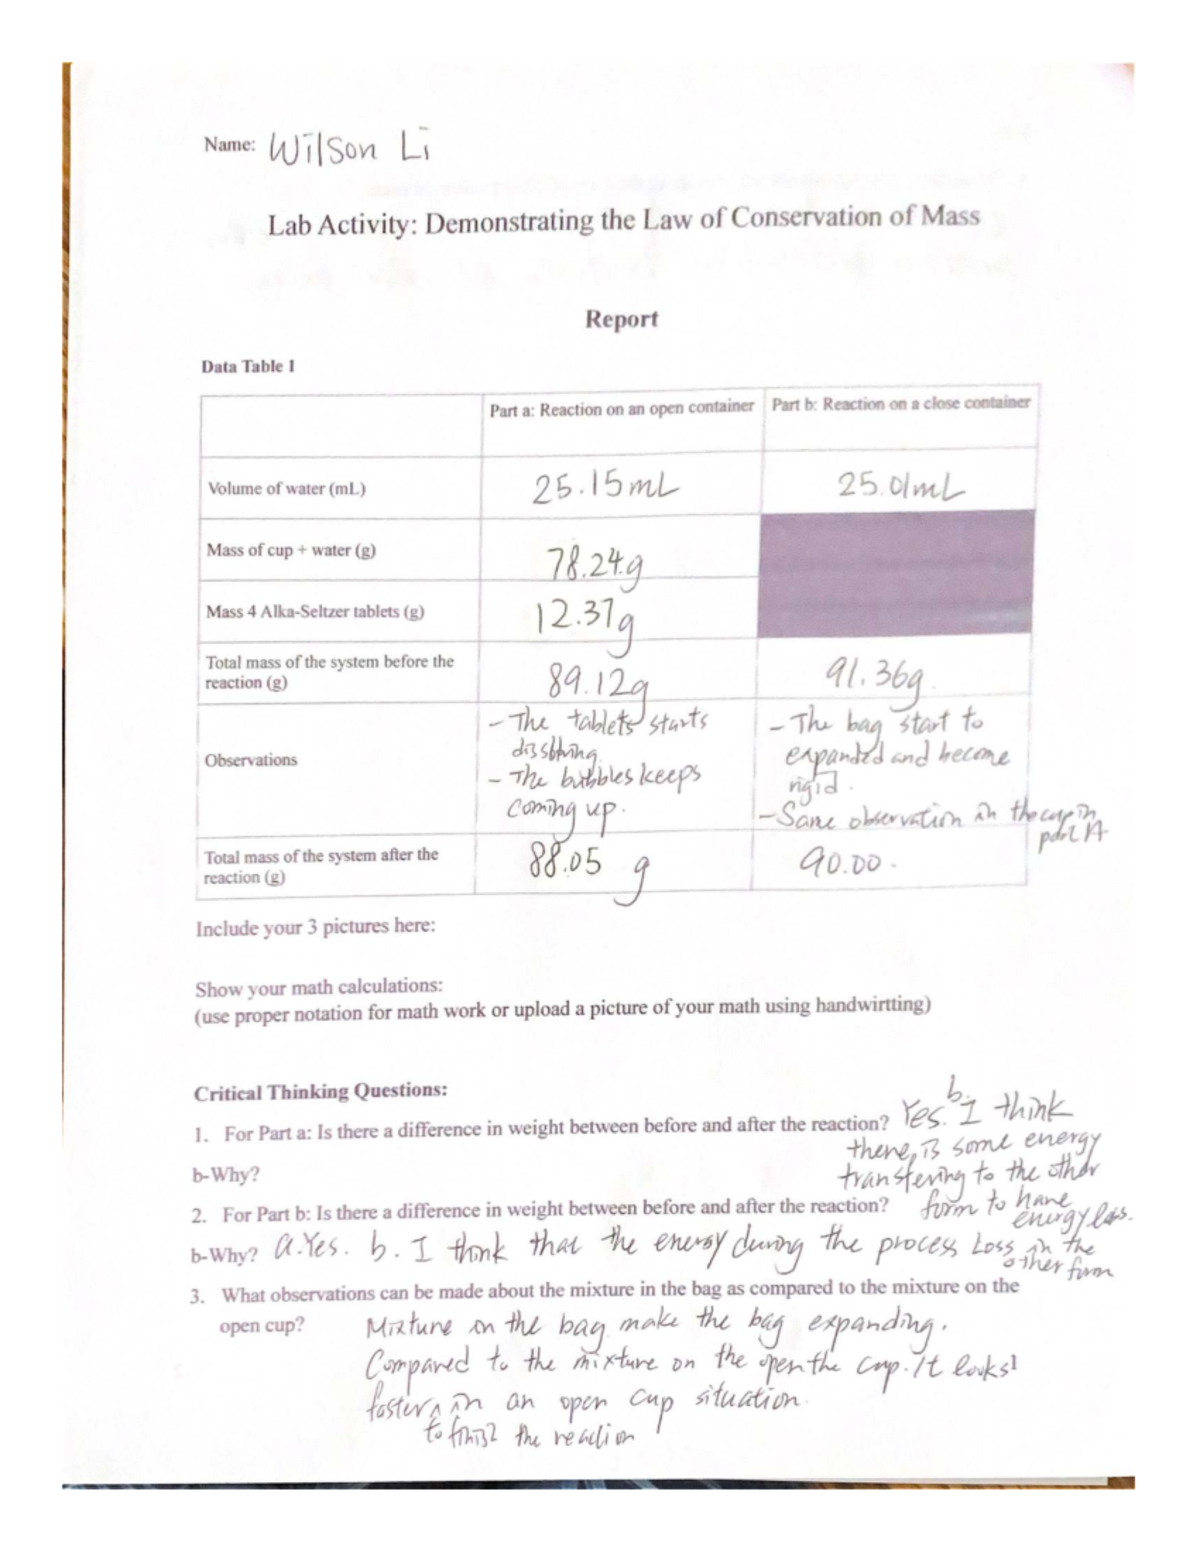 Name: Wilson Li
Lab Activity: Demonstrating the Law of Conservation of Mass
Report
Data Table 1
Part a: Reaction on an open container Part b: Reaction on a close container
Volume of water (mL) 25.15mL 25.01mL
Mass of cup + water (g) 78.24g
Mass 4 Alka-Seltzer tablets (g) 12.37g
Total mass of the system before the
reaction (g) 89.12g 91.36g
Observations
- The tablets starts
dissolving
- The bubbles keeps
coming up.
- The bag start to
expanded and become
rigid.
- Same observation in the cup in
part A
Total mass of the system after the
reaction (g) 88.05 g 90.00.
Include your 3 pictures here:
Show your math calculations:
(use proper notation for math work or upload a picture of your math using handwirtting)
Critical Thinking Questions:
1. For Part a: Is there a difference in weight between before and after the reaction? Yes. b. I think
there is some energy
b-Why? transfering to the other
form to have
energy loss.
2. For Part b: Is there a difference in weight between before and after the reaction?
b-Why? a. Yes. b. I think that the energy during the process Loss in the
other form
3. What observations can be made about the mixture in the bag as compared to the mixture on the
open cup? Mixture on the bag make the bag expanding.
Compared to the mixture on the open the cup. It looks
faster in an open cup situation.
to finish the reaction